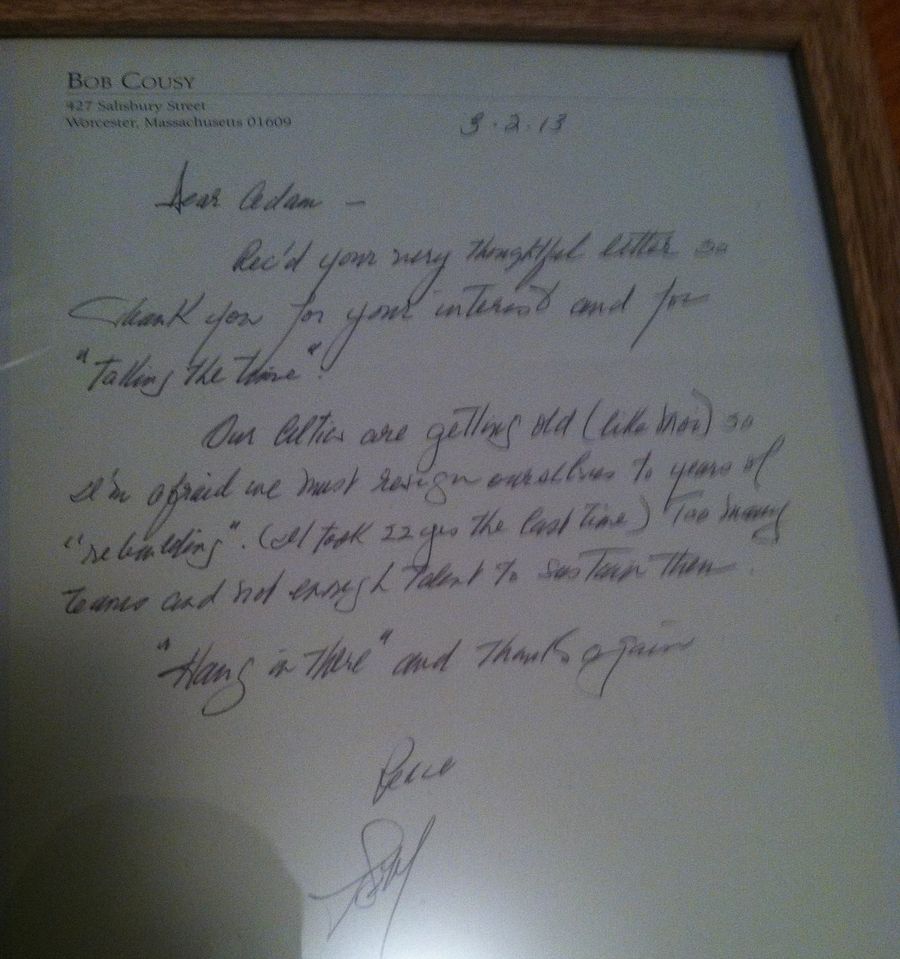 BOB COUSY
427 Salisbury Street
Worcester, Massachusetts 01609
3.2.13
Dear Adam —
Rec'd your very thoughtful letter so
Thank you for your interest and for
"taking the time".
Our Celtics are getting old (like moi) so
I'm afraid we must resign ourselves to years of
"rebuilding". (It took 22 yrs the last time) Too many
teams and not enough talent to sustain them.
"Hang in there" and thanks again
Peace